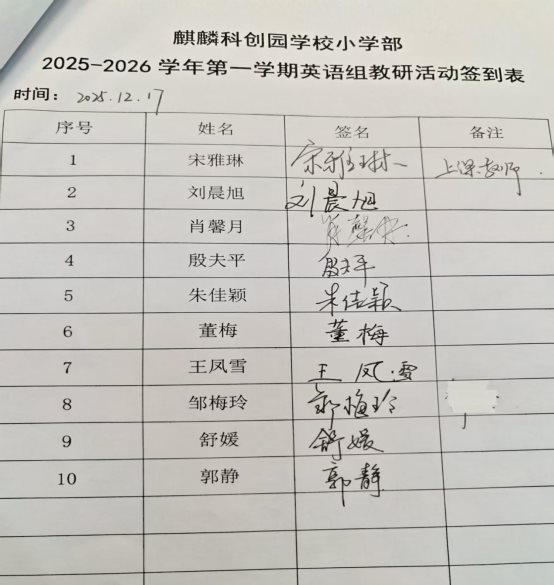 麒麟科创园学校小学部
2025-2026 学年第一学期英语组教研活动签到表
时间： 2025.12.17
序号 姓名 签名 备注
1 宋雅琳 宋雅琳 上课教师
2 刘晨旭 刘晨旭
3 肖馨月 肖馨月
4 殷夫平 殷夫平
5 朱佳颖 朱佳颖
6 董梅 董梅
7 王凤雪 王凤雪
8 邹梅玲 邹梅玲
9 舒媛 舒媛
10 郭静 郭静